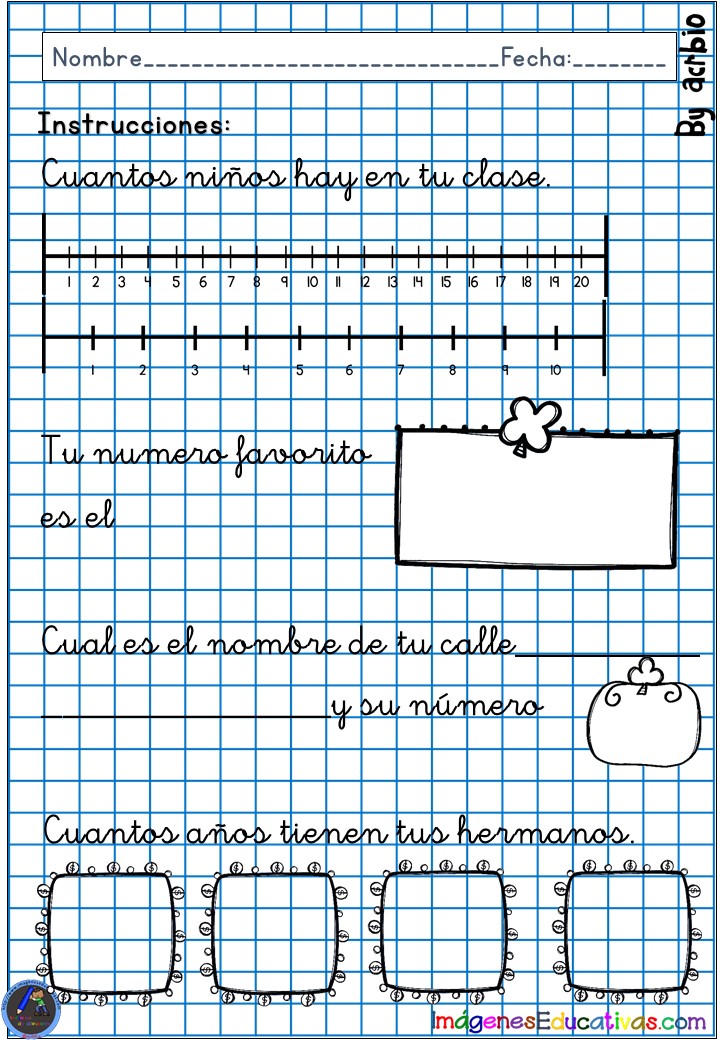 Nombre____________________________Fecha:________
By acrbio
Instrucciones:
Cuantos niños hay en tu clase.
1 2 3 4 5 6 7 8 9 10 11 12 13 14 15 16 17 18 19 20
1 2 3 4 5 6 7 8 9 10
Tu numero favorito
es el
Cual es el nombre de tu calle______________
______________________y su número
Cuantos años tienen tus hermanos.
ImágenesEducativas.com